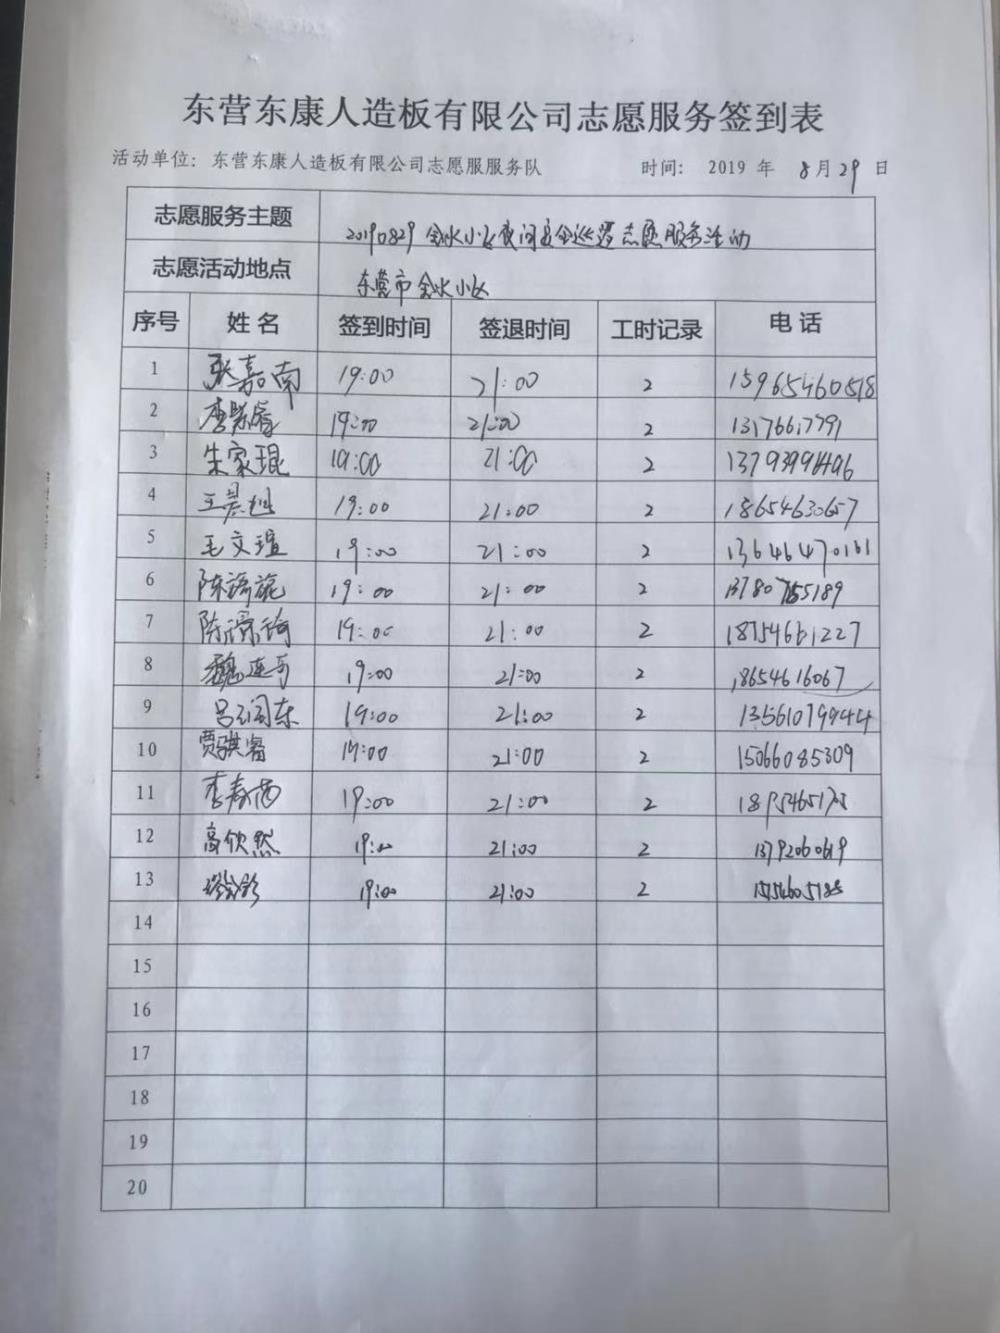 东营东康人造板有限公司志愿服务签到表
活动单位：东营东康人造板有限公司志愿服服务队 时间： 2019 年 8月29 日
志愿服务主题 20190829 金水小区夜间安全巡逻志愿服务活动
志愿活动地点 东营市金水小区
序号 姓名 签到时间 签退时间 工时记录 电话
1 张嘉南 19:00 21:00 2 15965460518
2 李 19:00 21:00 2 13176617791
3 朱家琨 19:00 21:00 2
4 王 19:00 21:00 2 18654630657
5 毛文瑄 19:00 21:00 2 13646470161
6 陈 19:00 21:00 2
7 陈 19:00 21:00 2 18754661227
8 魏连 19:00 21:00 2 18654616067
9 吕润东 19:00 21:00 2 13561079944
10 贾骐睿 19:00 21:00 2 15066085309
11 李春 19:00 21:00 2
12 高欣然 19:00 21:00 2 13792060619
13 19:00 21:00 2
14
15
16
17
18
19
20